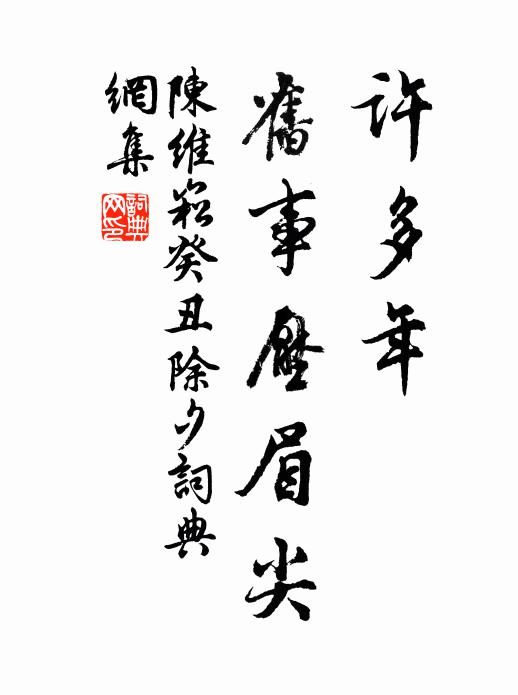 許多年
舊事壓眉尖
陳維崧癸丑除夕詞典
網集
詞典網印